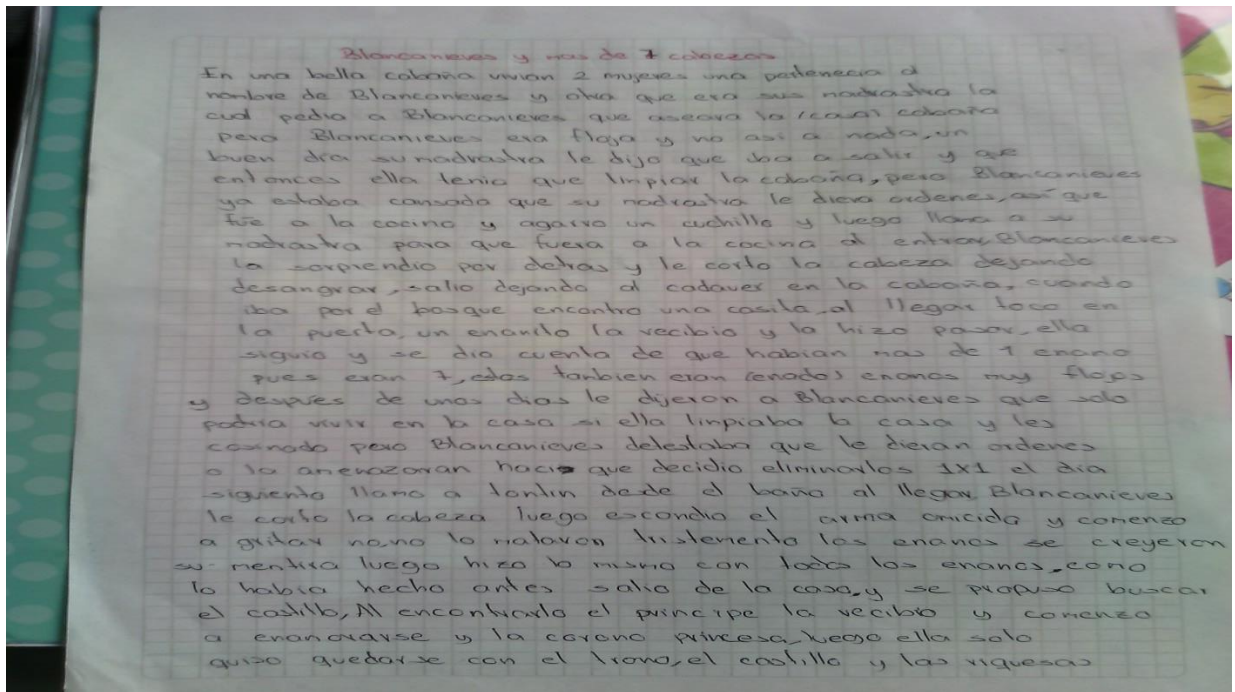 Blancanieves y mas de 7 cabezas
En una bella cabaña vivian 2 mujeres una pertenecia al
nombre de Blancanieves y otra que era su madrastra la
cual pedia a Blancanieves que aseara la (casa) cabaña
pero Blancanieves era floja y no asi a nada, un
buen dia su madrastra le dijo que iba a salir y que
entonces ella tenia que limpiar la cabaña, pero Blancanieves
ya estaba cansada que su madrastra le diera ordenes, asi que
fue a la cocina y agarro un cuchillo y luego llamo a su
madrastra para que fuera a la cocina al entrar Blancanieves
la sorprendio por detras y le corto la cabeza dejando
desangrar, salio dejando al cadaver en la cabaña, cuando
iba por el bosque encontro una casita, al llegar toco en
la puerta, un enanito la recibio y la hizo pasar, ella
siguio y se dio cuenta de que habian mas de 1 enano
pues eran 7, estos tanbien eran (enados) enanos muy flojos
y despues de unos dias le dijeron a Blancanieves que solo
podria vivir en la casa si ella linpiaba la casa y les
cosinado pero Blancanieves detestaba que le dieran ordenes
o la amenazaran hací que decidio eliminarlos 1x1 el dia
siguiente llamo a tontin desde el baño al llegar Blancanieves
le corto la cabeza luego escondio el arma omicida y comenzo
a gritar no, no lo mataron tristemente los enanos se creyeron
su mentira luego hizo lo mismo con todos los enanos, como
lo habia hecho antes salio de la casa, y se propuso buscar
el castillo, Al encontrarlo el principe la recibio y comenzo
a enamorarse y la corono princesa, luego ella solo
quiso quedarse con el trono, el castillo y las riquesas